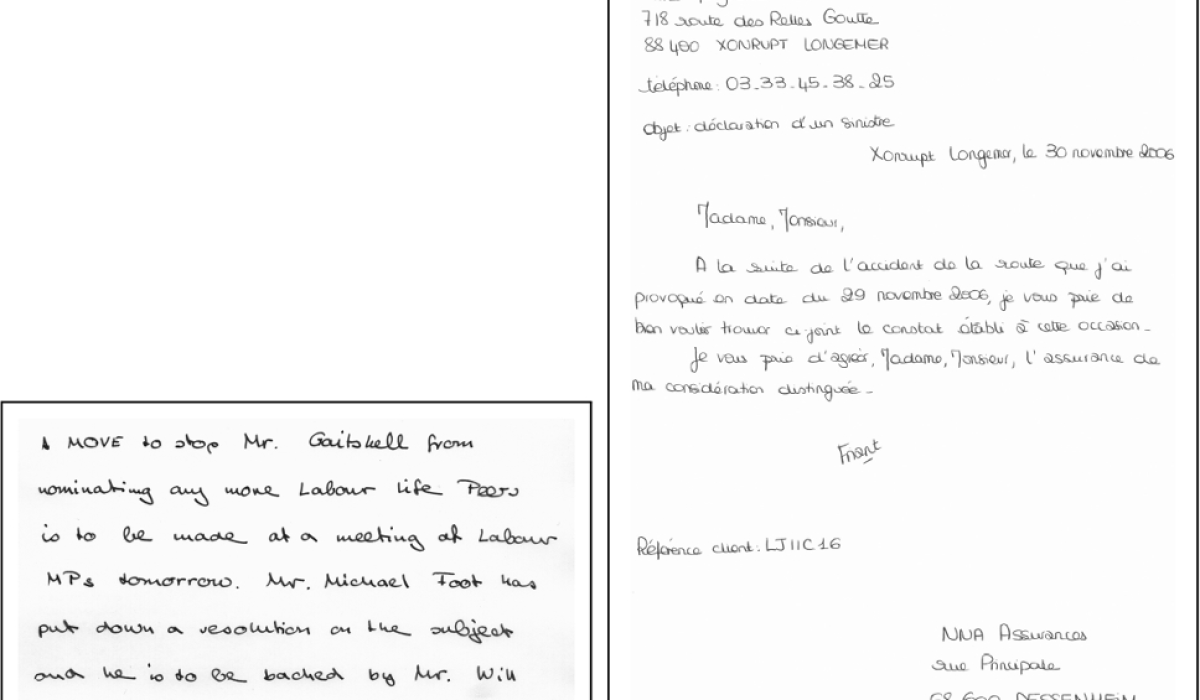 A MOVE to stop Mr. Gaitskell from
nominating any more Labour Life Peers
is to be made at a meeting of Labour
MPs tomorrow. Mr. Michael Foot has
put down a resolution on the subject
and he is to be backed by Mr. Will
718 route des Relles Goutte
88400 XONRUPT LONGEMER
téléphone: 03.33.45.38.25
Objet: déclaration d'un sinistre
Xonrupt Longemer, le 30 novembre 2006
Madame, Monsieur,
A la suite de l'accident de la route que j'ai
provoqué en date du 29 novembre 2006, je vous prie de
bien vouloir trouver ci joint le constat établi à cette occasion.
Je vous prie d'agréer, Madame, Monsieur, l'assurance de
ma considération distinguée.
Référence client: LJIIC16
NNA Assurances
rue Principale
68 600 DESSENHEIM